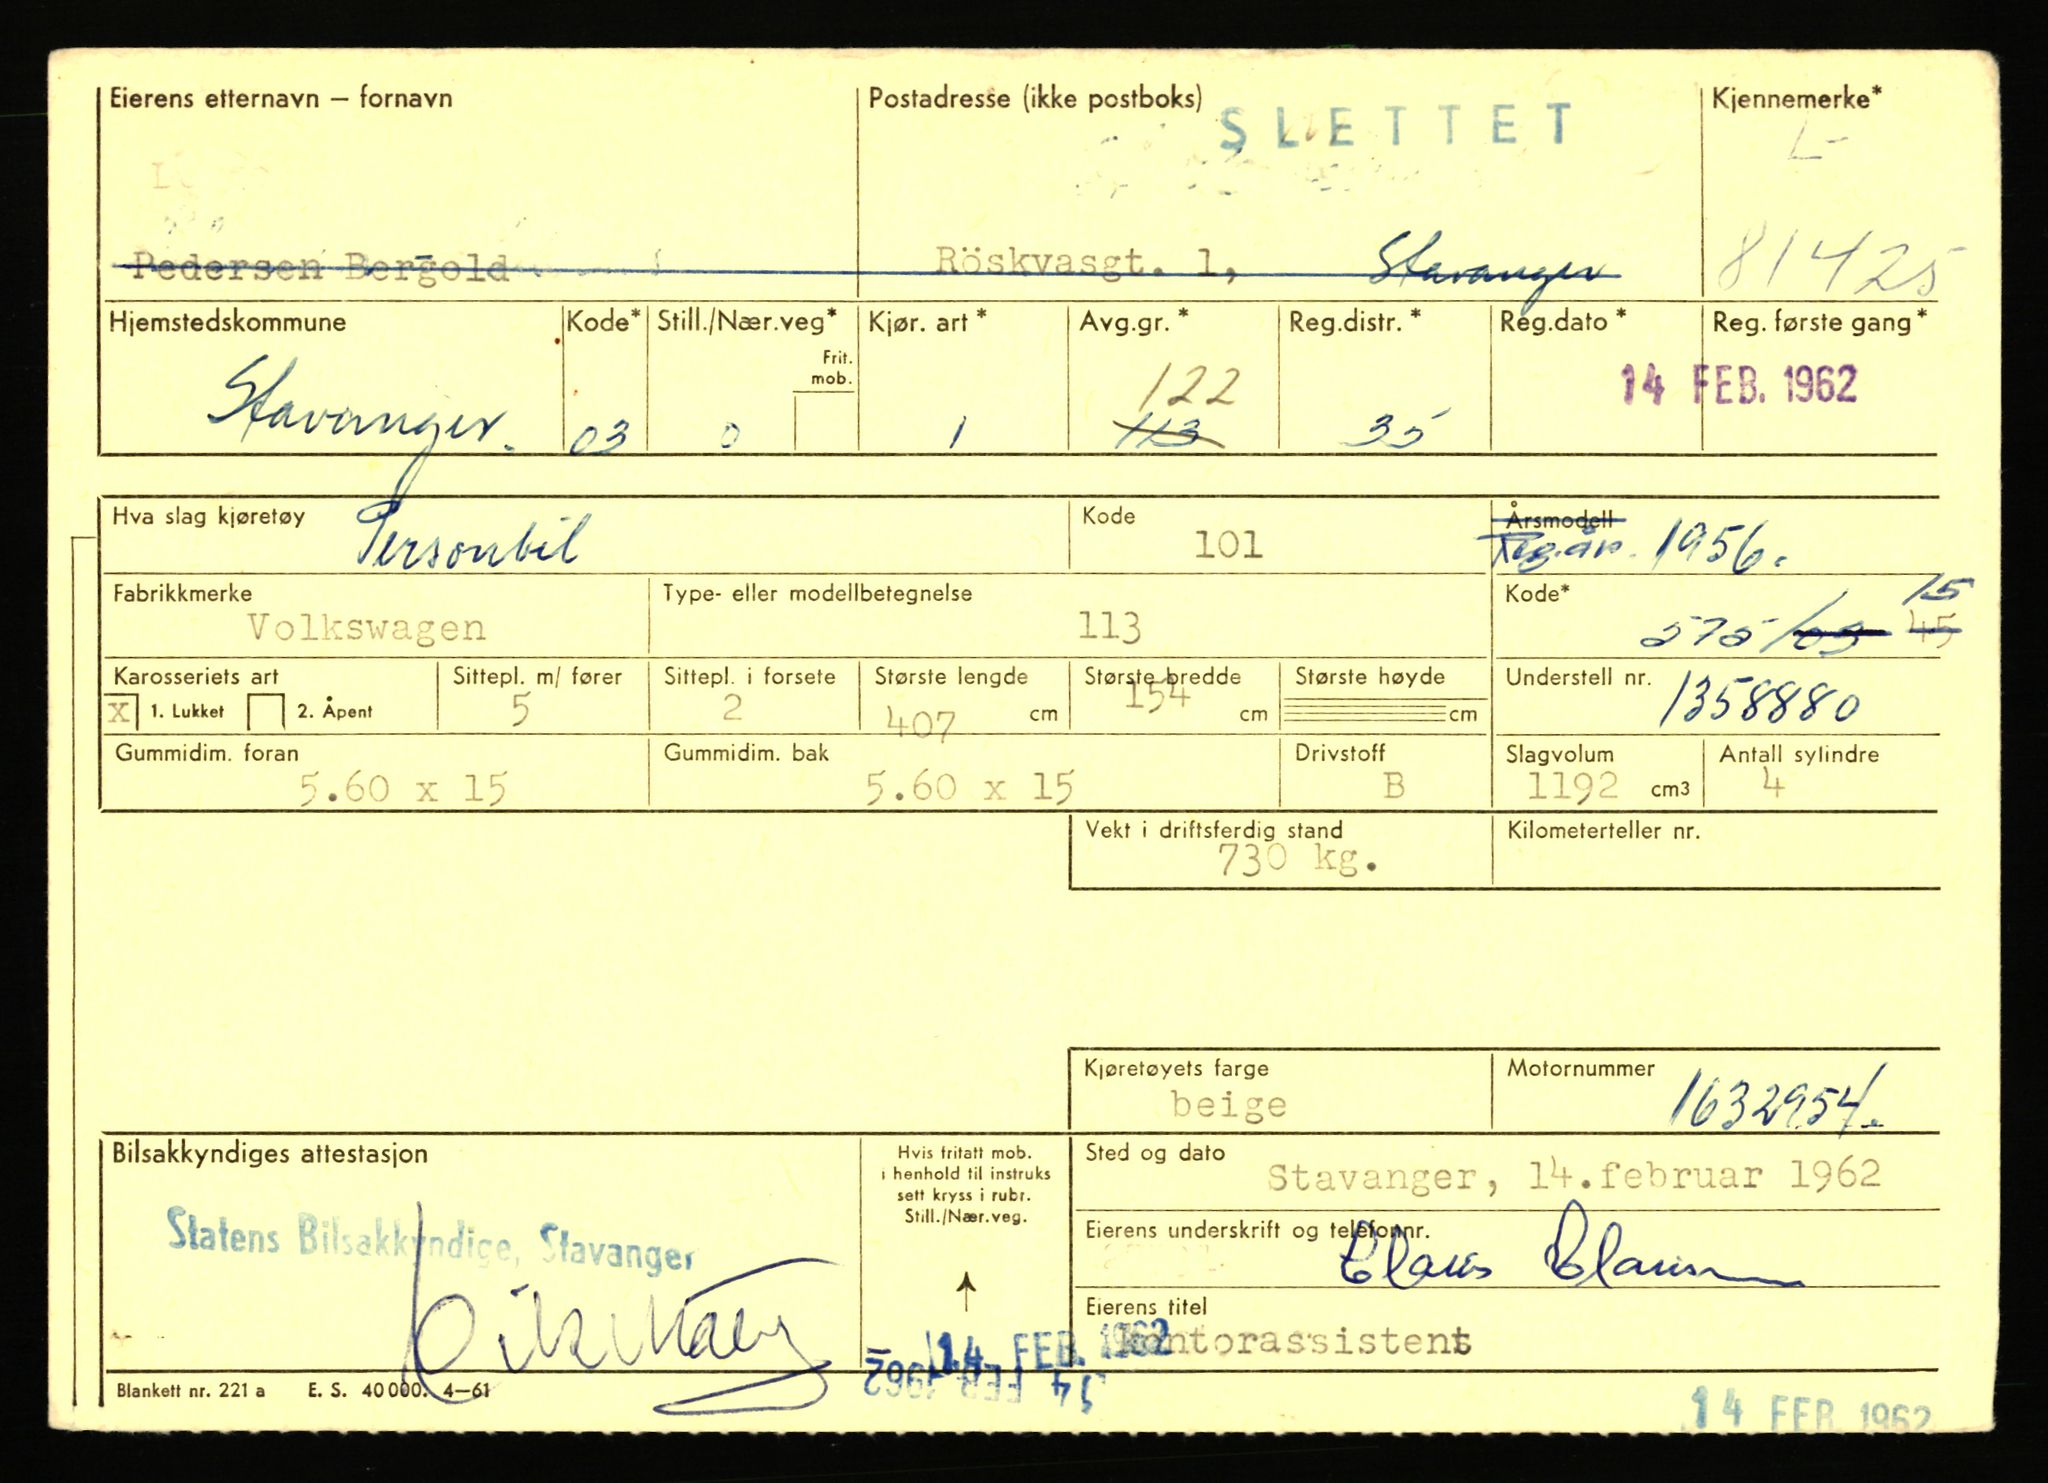 Eierens etternavn – fornavn
Postadresse (ikke postboks)
Kjennemerke*
SLETTET
L-
Pedersen Bergold
Röskvasgt. 1, Stavanger
81425
Hjemstedskommune
Kode*
Still./Nær.veg*
Kjør. art *
Avg.gr. *
Reg.distr. *
Reg.dato *
Reg. første gang*
Frit.
mob.
122
14 FEB. 1962
Stavanger.
03
0
1
113
35
Hva slag kjøretøy
Personbil
Kode
101
Årsmodell
Reg.år. 1956.
Fabrikkmerke
Volkswagen
Type- eller modellbetegnelse
113
Kode*
15
575/03 45
Karosseriets art
X 1. Lukket 2. Åpent
Sittepl. m/ fører
5
Sittepl. i forsete
2
Største lengde
407 cm
Største bredde
154 cm
Største høyde
cm
Understell nr.
1358880
Gummidim. foran
5.60 x 15
Gummidim. bak
5.60 x 15
Drivstoff
B
Slagvolum
1192 cm3
Antall sylindre
4
Vekt i driftsferdig stand
730 kg.
Kilometerteller nr.
Kjøretøyets farge
beige
Motornummer
1632954.
Bilsakkyndiges attestasjon
Statens Bilsakkyndige, Stavanger
Hvis fritatt mob.
i henhold til instruks
sett kryss i rubr.
Still./Nær.veg.
Sted og dato
Stavanger, 14.februar 1962
Eierens underskrift og telefonnr.
Eierens titel
kontorassistent
14 FEB. 1962
14 FEB 1962
Blankett nr. 221 a E. S. 40 000. 4–61
14 FEB 1962